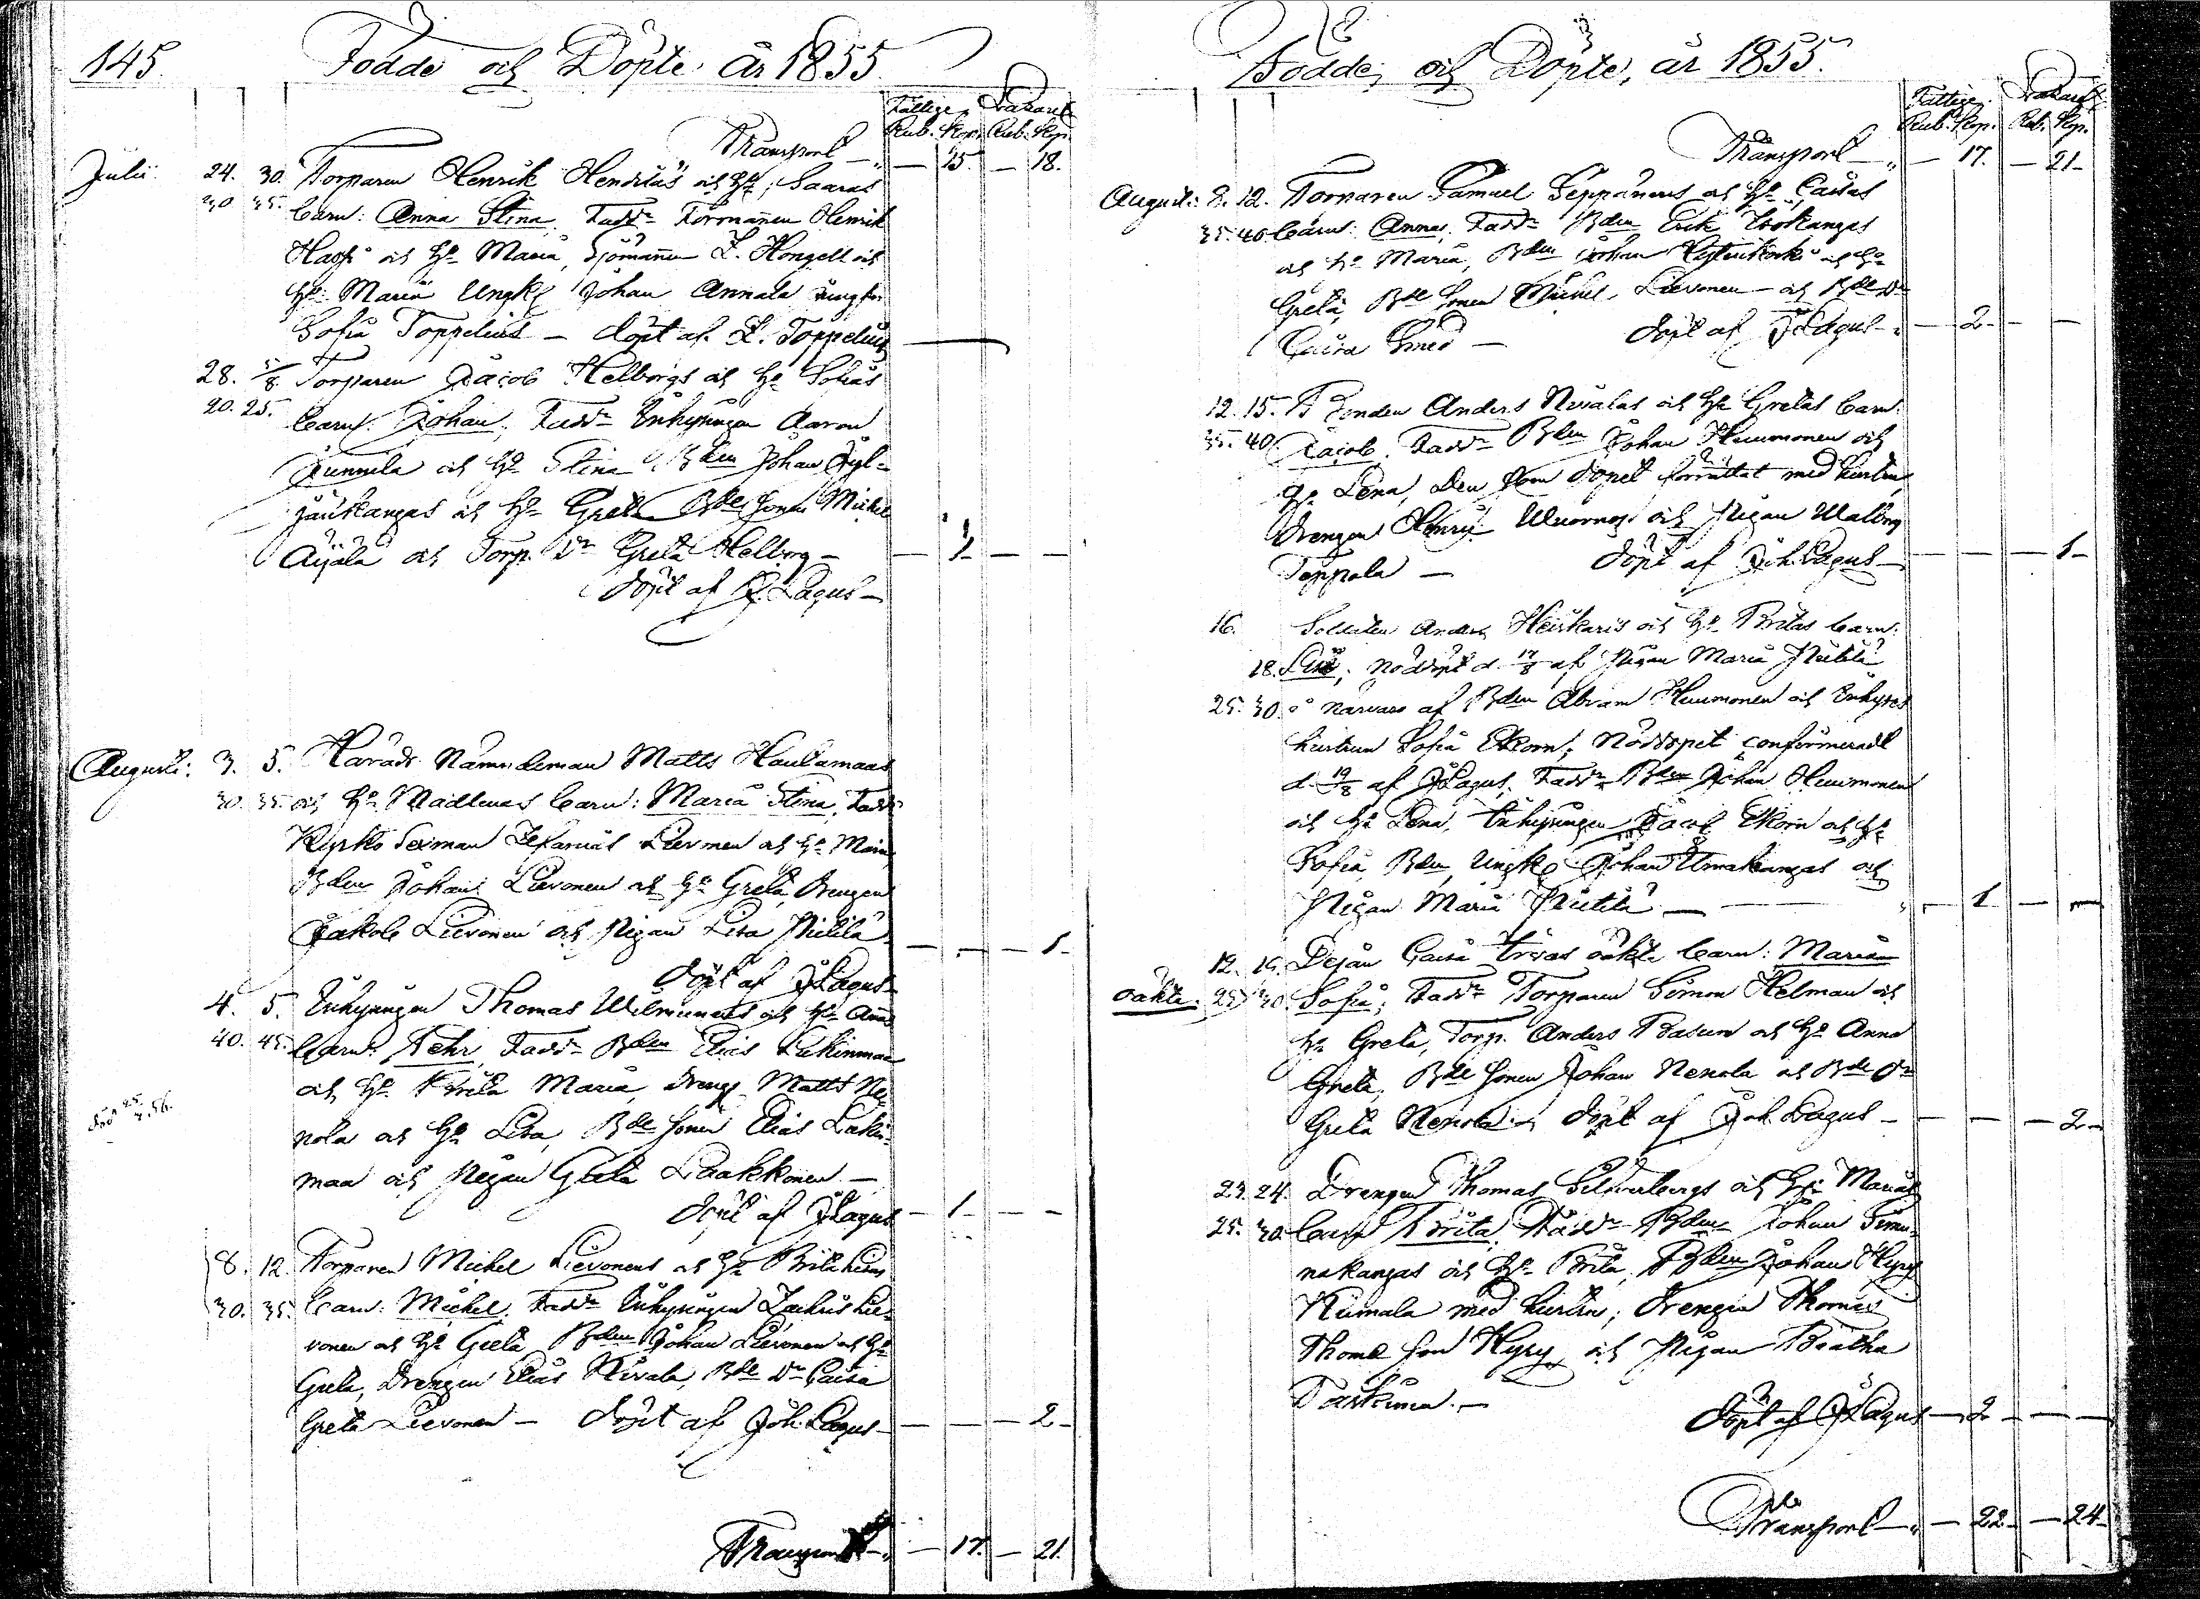 145. Födde och Döpte år 1855
Fattige Lazaret
Rub. Kop. Rub. Kop.
Transport — 15 — 18.
Julii 24. 30. Torparen Henrik Hendriläs och Ho Saaras
30 35. barn: Anna Stina, Faddr Förmannen Henrik
och Ho Maria, Sjömannen Z. Hongell och
Ho Maria Ungkl Johan Annala jungfr
Sofia Toppelius — döpt af Z. Toppelius
28. 5/8 Torparen Jacob Helborgs och Ho Sofias
20. 25. barn: Johan, Faddr Inhysingen Aaron
Junnila och Ho Stina Bden Johan
och Ho Greta Bde sonen Michel
Aijälä och Torp. Dr Greta Helborg — — 1 — —
döpt af J. Lagus —
Augusti: 3. 5. Härads Nämndeman Matts Haulamaas
30. 35. och Ho Madlenas barn: Maria Stina, Faddr
Kyrko Sexman Lievonen och Ho Maria
Bden Johan Lievonen och Ho Greta, Drengen
Jakob Lievonen och Pigan Lisa Pietilä — — — 1 —
döpt af J Lagus —
4. 5. Inhysingen Thomas och Ho Annas
40. 45. barn: Pehr, Faddr Bden Elias Lakinmaa
och Ho Brita Maria, Dreng Matts Ne-
nola och Ho Lisa, Bde sonen Elias Lakin-
död 25/4 56.
maa och Pigan Greta Laakkonen. —
döpt af J Lagus — 1 — —
8. 12. Torparen Michel Lievonens och Ho Brita
30. 35. barn: Michel, Faddr Inhysingen Zachris Lie-
vonen och Ho Greta Bden Johan Lievonen och Ho
Greta, Drengen Elias Nivala, Bde Dr Caisa
Greta Lievonen — döpt af Joh. Lagus — — — 2 —
Transport — 17. — 21.
Födde och Döpte, år 1855.
Fattige Lazaret
Rub. Kop. Rub. Kop.
Transport — 17. — 21 —
Augusti: 8. 12. Torparen Samuel Seppänens och Ho Caisas
35. 40 barn: Anna, Faddr Bden Erik
och Ho Maria, Bden Johan och Ho
Greta, Bde sonen Michel Lievonen — och Bde Dr
Caisa Smed — döpt af J Lagus — — 2 — —
12. 15. Bonden Anders Nivalas och Ho Gretas barn:
35. 40. Jacob, Faddr Bden Johan Huumonen och
Ho Lena, Den som dopet förrättat med hustru,
Drengen Henrik och Pigan Walborg
Seppälä — döpt af Joh. Lagus — — — — 1 —
16. Soldaten Anders Heiskaris och Ho Britas barn:
18. Lisa, nöddöpt d. 17/8 af Pigan Maria Pietilä
25. 30. i närvaro af Bden Abram Huumonen och Inhyses
hustrun Sofia Ekorn, Nöddopet confirmeradt
d. 19/8 af J Lagus. Faddr Bden Johan Huumonen
och Ho Lena, Inhysingen Jacob Ekorn och Ho
Sofia, Bden Ungkl Johan och
Pigan Maria Pietilä — — 1 — —
12. 19. Pigan Caisa oäkta barn: Maria
oäkta. 25. 30. Sofia, Faddr Torparen Simon Helman och
Ho Greta, Torp. Anders Basum och Ho Anna
Greta, Bde sonen Johan Nenola och Bde Dr
Greta Nenola — döpt af Joh. Lagus — — — — 2 —
23. 24. Drengen Thomas Silfverbergs och Ho Marias
25. 30. barn Brita, Faddr Bden Johan
nakangas och Ho Brita, Bden Johan Hyry
med hustru, Drengen Thomas
Thomæ son Hyry och Pigan Beatha
Taskinen. — döpt af J Lagus — 2 — — —
Transport — 22 — 24 —